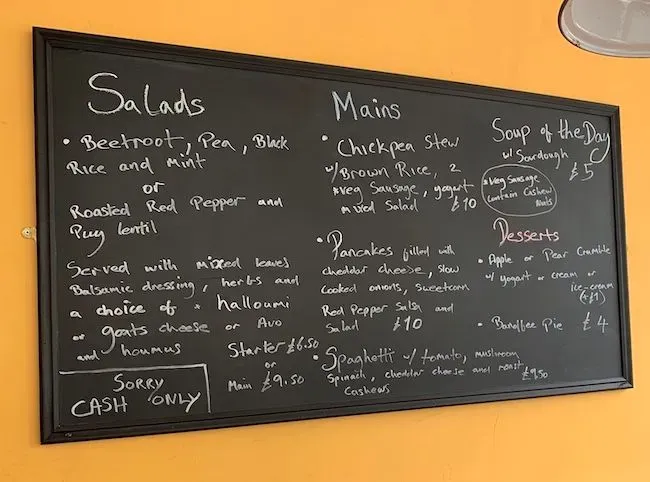 Salads
• Beetroot, Pea, Black
Rice and Mint
or
Roasted Red Pepper and
Puy lentil
Served with mixed leaves
Balsamic dressing, herbs and
a choice of * halloumi
or goats cheese or Avo
and houmus
Starter £6.50
or
Main £9.50
SORRY
CASH ONLY
Mains
• Chickpea Stew
w/ Brown Rice, 2
*Veg Sausage, yogurt
mixed Salad £10
• Pancakes filled with
cheddar cheese, slow
cooked onions, sweetcorn
Red Pepper Salsa and
Salad £10
• Spaghetti w/ tomato, mushroom
Spinach, cheddar cheese and roast £9.50
Cashews
Soup of the Day
w/ Sourdough £5
*Veg Sausage
Contain Cashew
Nuts
Desserts
• Apple or Pear Crumble
w/ yogurt or cream or
ice-cream
(+£1)
• Banoffee Pie £4